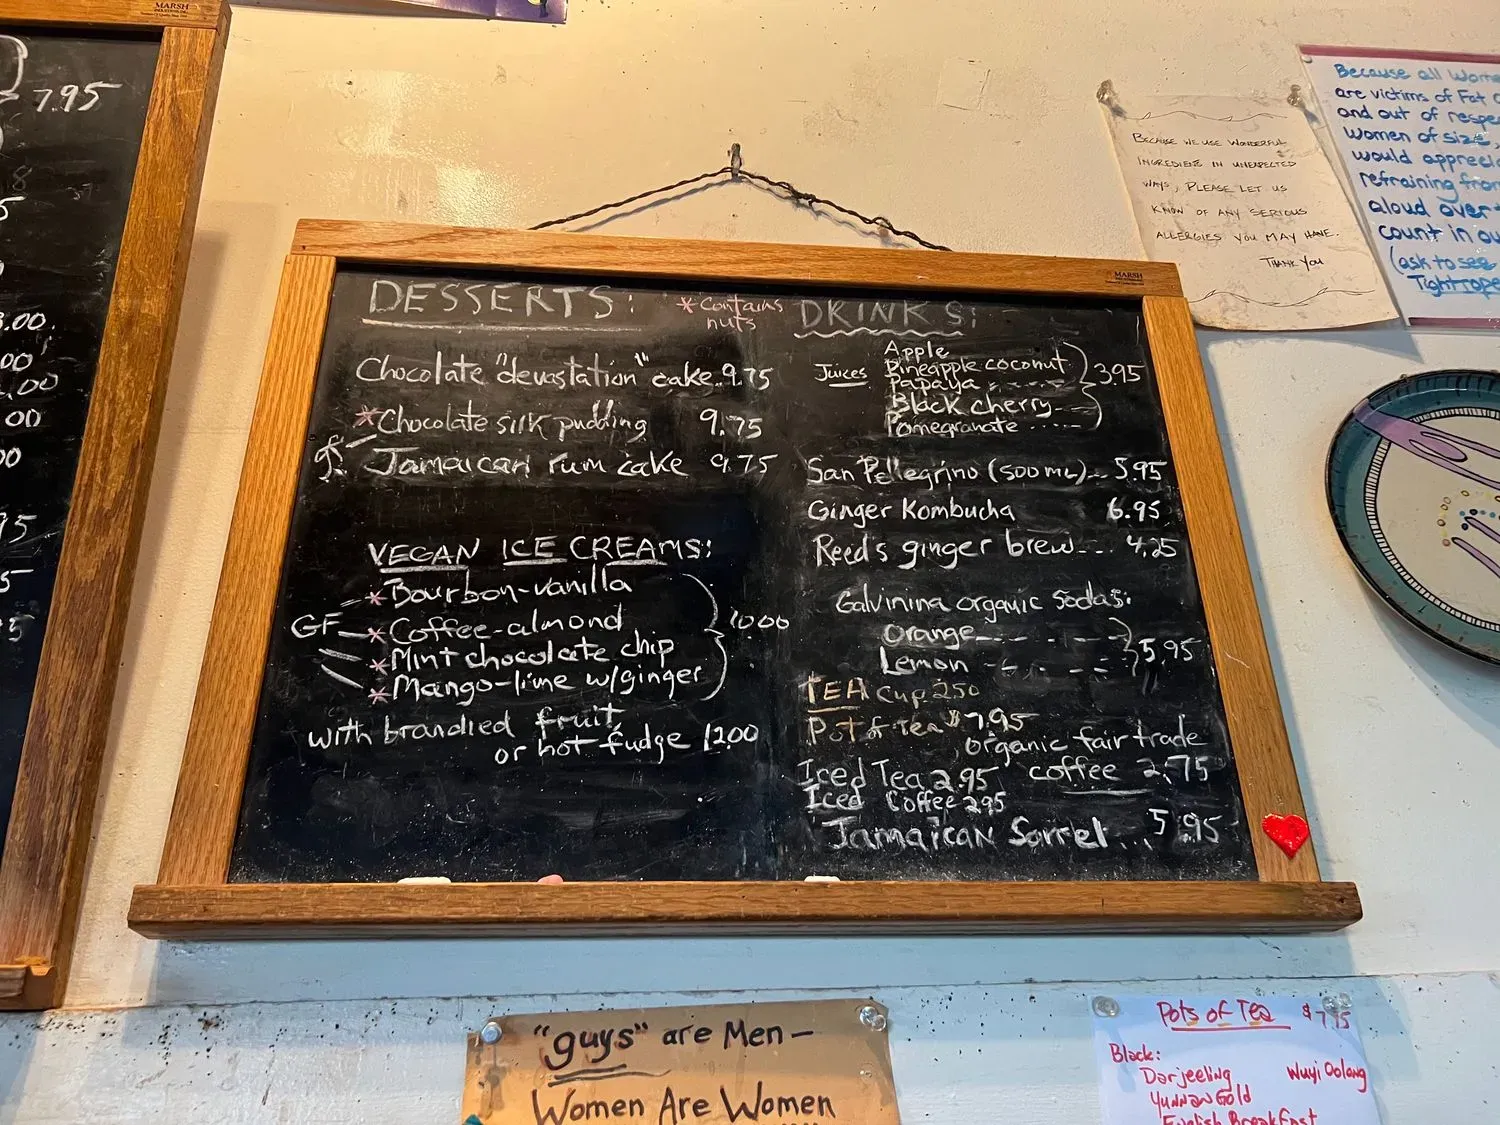 MARSH
7.95
8
5
3.00.
00
.00
00
00
95
5
5
MARSH
DESSERTS:
* Contains
nuts
Chocolate "devastation" cake..9.75
*Chocolate silk pudding 9.75
Jamaican rum cake 9.75
VEGAN ICE CREAMS:
GF
* Bourbon-vanilla
* Coffee-almond
* Mint chocolate chip
* Mango-lime w/ginger
10.00
with brandied fruit
or hot fudge 12.00
DRINKS:
Juices
Apple
Pineapple coconut
Papaya
Black cherry
Pomegranate
3.95
San Pellegrino (500 mL)... 5.95
Ginger Kombucha 6.95
Reed's ginger brew... 4.25
Galvinina organic sodas:
Orange
Lemon
5.95
TEA Cup 2.50
Pot of tea $7.95
organic fair trade
coffee 2.75
Iced Tea 2.95
Iced Coffee 2.95
Jamaican Sorrel... 5.95
Because we use wonderful
ingredients in unexpected
ways, please let us
know of any serious
allergies you may have.
Thank you
Because all Wome
are victims of Fat
and out of respe
women of size,
would apprecia
refraining from
aloud over
count in ou
(ask to see
Tightrope
"guys" are Men -
Women Are Women
Pots of Tea
Black:
Darjeeling Wuyi Oolong
Yunnan Gold
English Breakfast